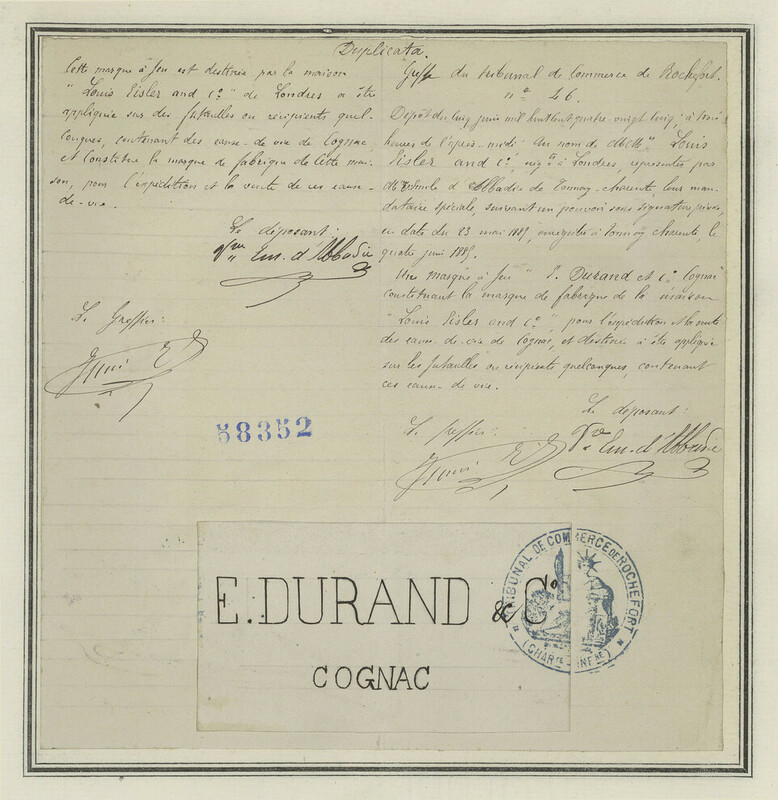 Duplicata.
Cette marque à feu est destinée par la maison
"Louis Eisler and Co" de Londres à être
appliquée sur des futailles ou récipients quel-
conques, contenant des eaux-de-vie de Cognac,
et constitue la marque de fabrique de cette mai-
son, pour l'expédition et la vente de ces eaux-
de-vie.
Le déposant:
Vve Em. d'Abbadie
Le Greffier:
Greffe du tribunal de Commerce de Rochefort.
no 46.
Dépôt du cinq juin mil huit cent quatre-vingt cinq, à trois
heures de l'après-midi au nom de MM. Louis
Eisler and Co, négts à Londres, représentés par
d'Abbadie de Tonnay-charente, leur man-
dataire spéciale, suivant un pouvoir sous signature privée,
en date du 23 mai 1885, enregistré à Tonnay charente, le
quatre juin 1885.
Une marque à feu "E. Durand et Co Cognac
constituant la marque de fabrique de la maison
"Louis Eisler and Co", pour l'expédition et la vente
des eaux-de-vie de Cognac, et destinée à être appliquée
sur les futailles ou récipients quelconques, contenant
ces eaux-de vie.
Le déposant:
Le greffier:
Vve Em. d'Abbadie
58352
E. DURAND & Co
COGNAC
TRIBUNAL DE COMMERCE DE ROCHEFORT
(CHARTE INFRE)